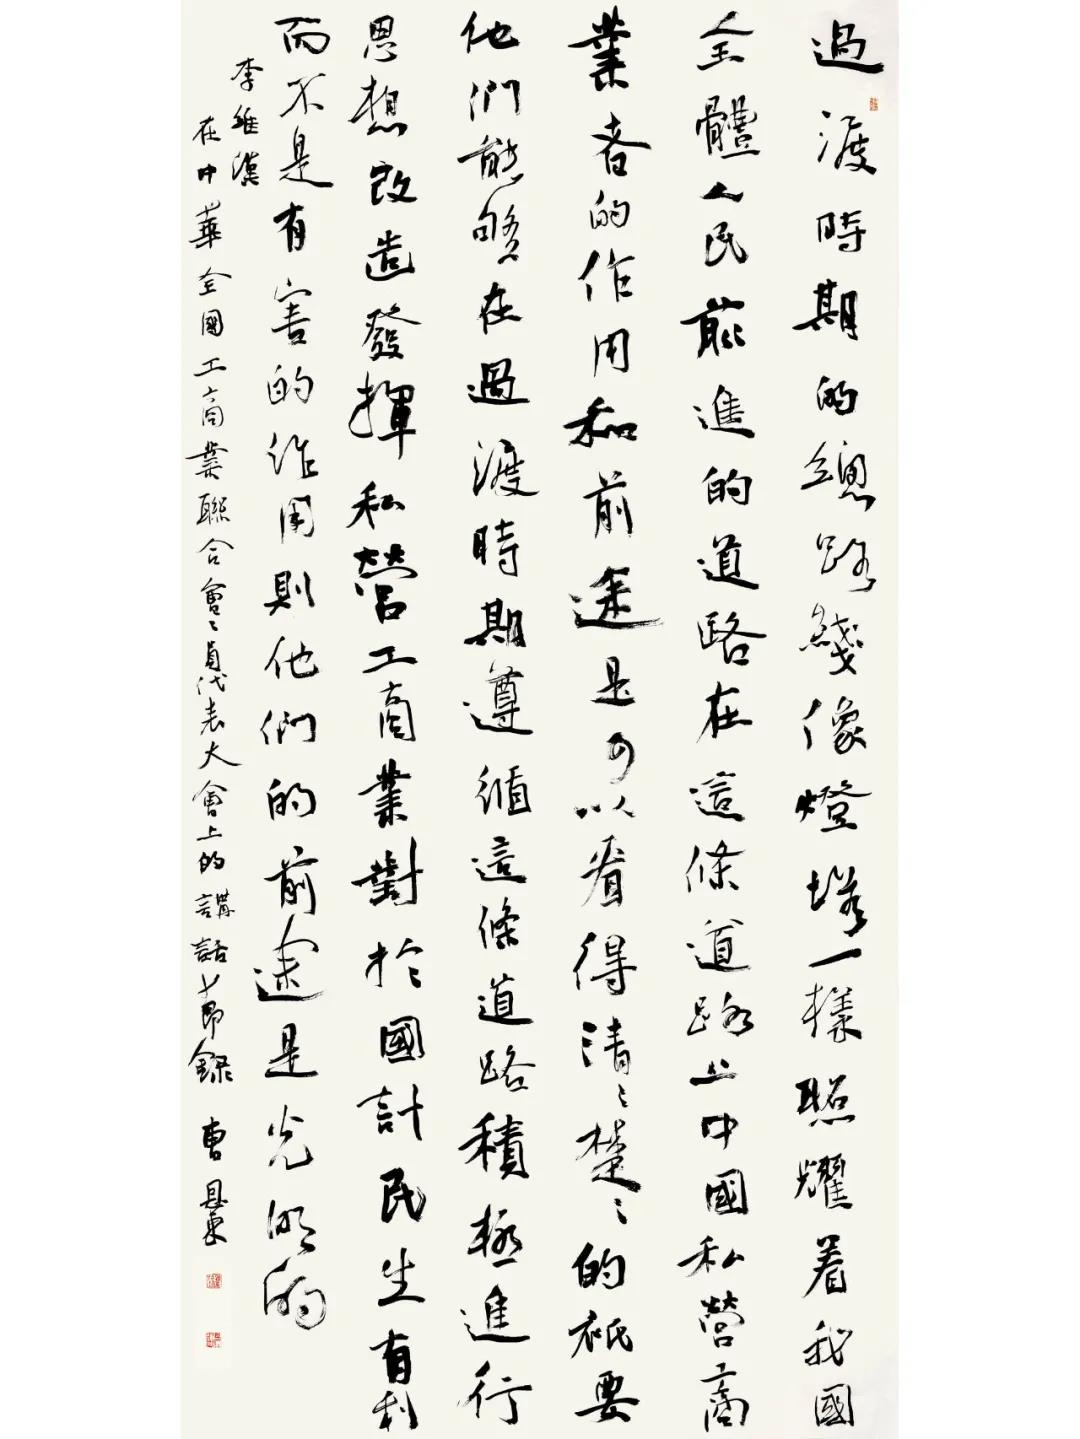 過渡時期的總路綫像燈塔一樣照耀着我國
全體人民前進的道路在這條道路上中國私營商
業者的作用和前途是可以看得清清楚楚的祇要
他們能够在過渡時期遵循這條道路積極進行
思想改造發揮私營工商業對於國計民生有利
而不是有害的作用則他們的前途是光明的
李維漢
在中華全國工商業聯合會會員代表大會上的講話節錄 曹